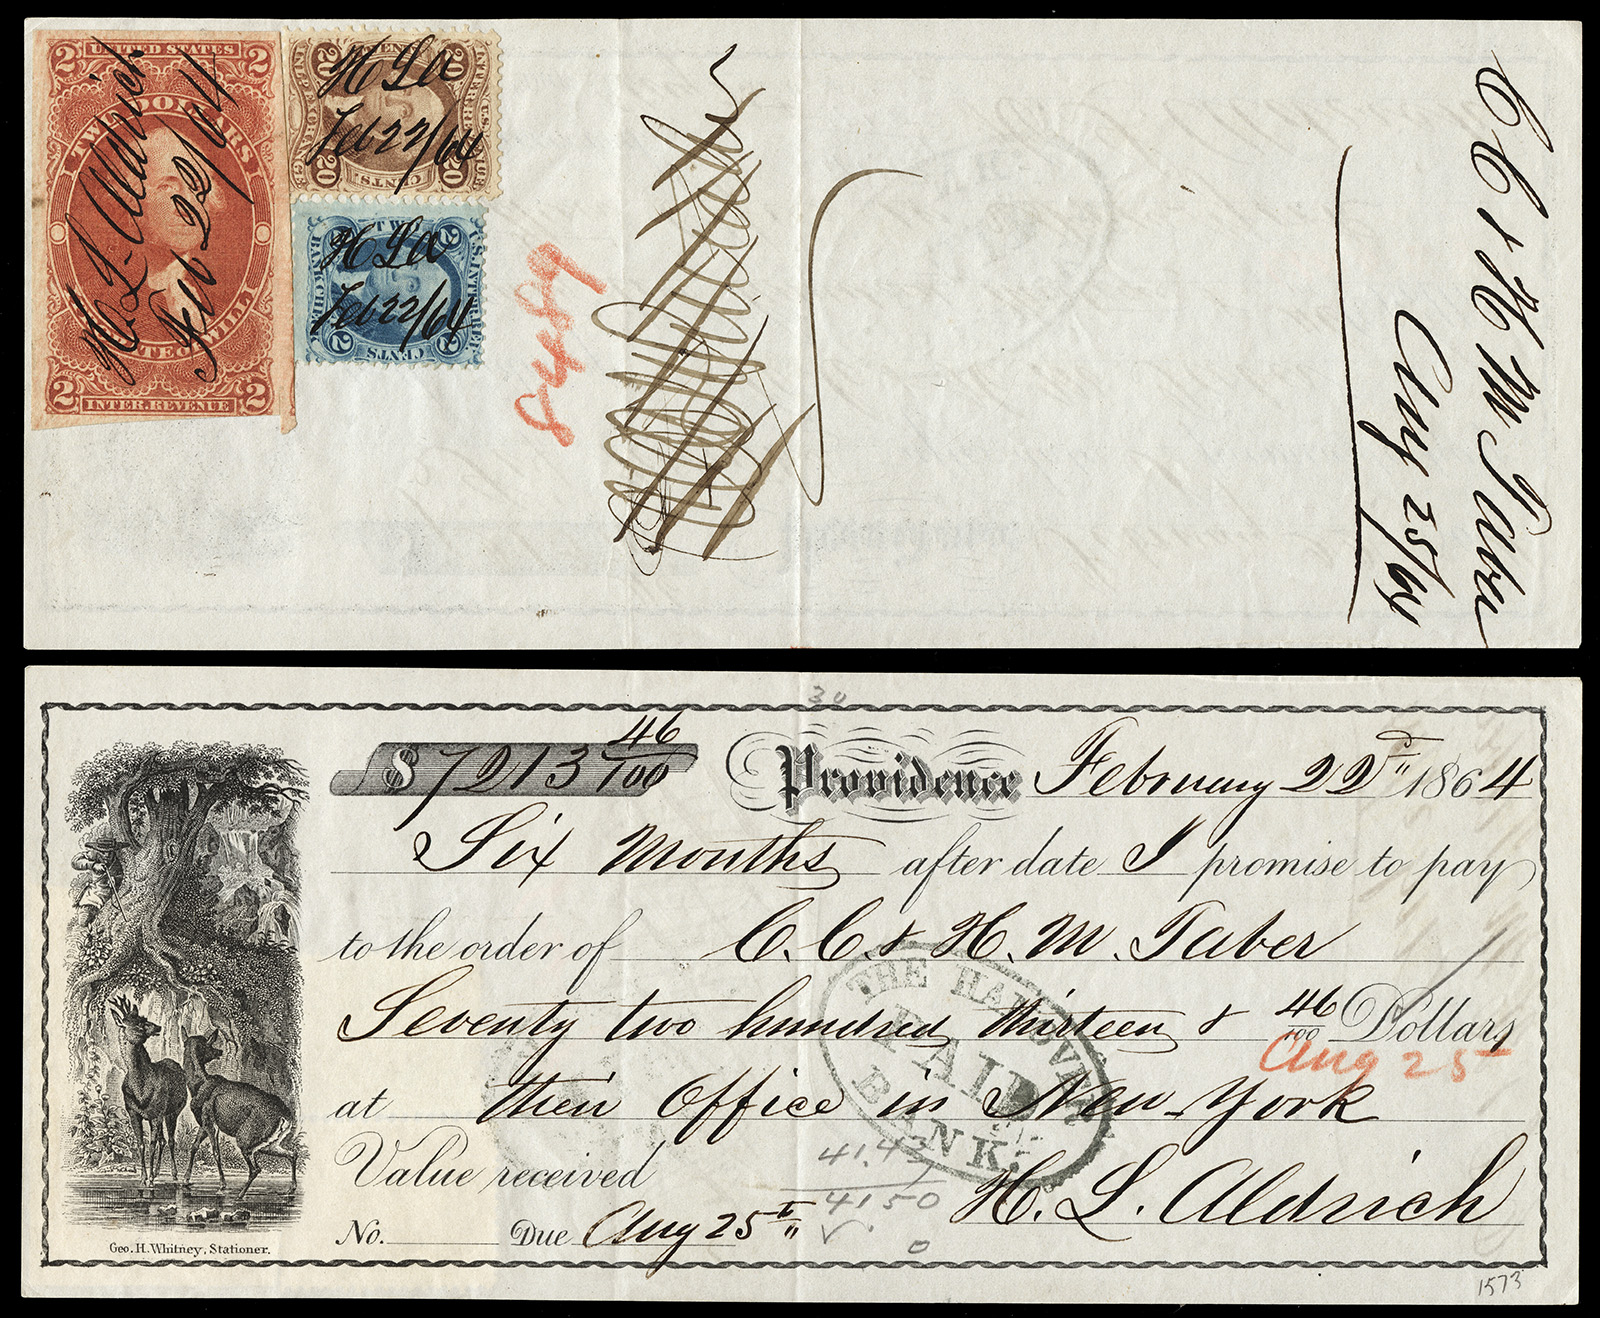 2 UNITED STATES 2
TWO DOLLARS
PROBATE OF WILL
2 INTER. REVENUE 2
H. L. Aldrich
Feb 22/64
20 20
INTER. EXCHANGE
U.S. INTER. REVENUE
20 CENTS 20
H L A
Feb 22/64
2 TWO 2
BANK CHECK
U.S. INTER. REV.
2 CENTS 2
H L A
Feb 22/64
C C & H M Taber
Aug 25/64
30
$7213 46/100
Providence February 22d 1864
Six Months after date I promise to pay
to the order of C. C. & H. M. Taber
Seventy two hundred thirteen & 46/100 Dollars
Aug 25
at their Office in New York
THE HANOVER
PAID
BANK.
Value received
41.43
4150
0
H. L. Aldrich
No. Due Aug 25th
Geo. H. Whitney, Stationer.
1573